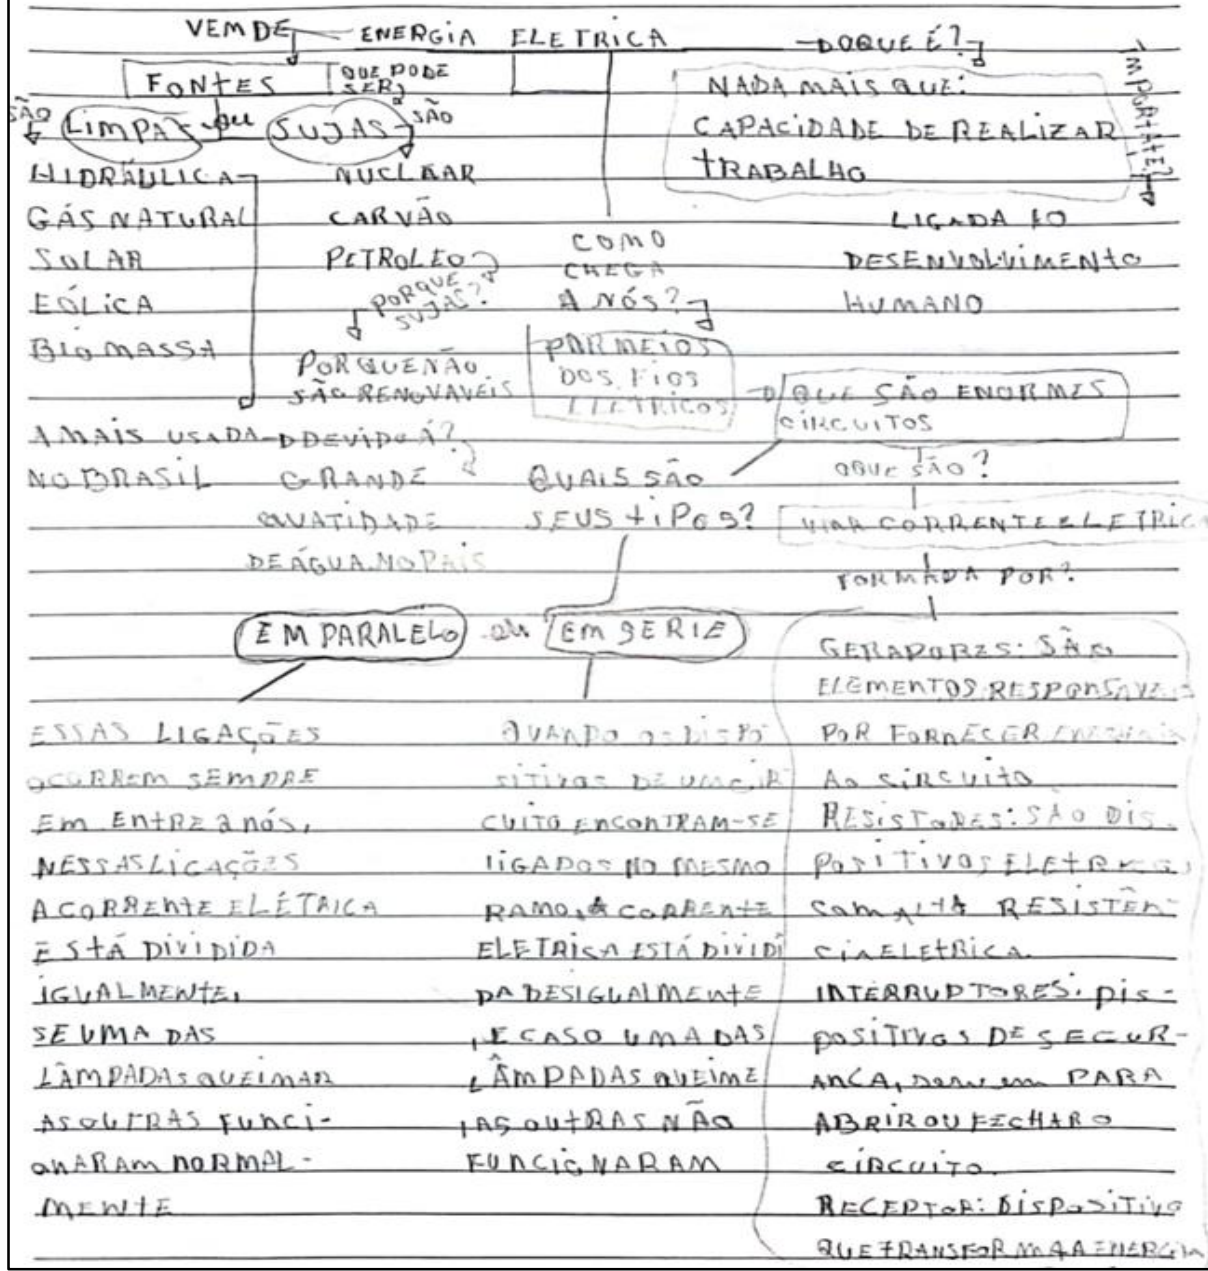 VEM DE ENERGIA ELETRICA DOQUE É?
FONTES
QUE PODE
SER?
SÃO
LIMPAS OU SUJAS
SÃO
HIDRÁULICA
GÁS NATURAL
SOLAR
EÓLICA
BIOMASSA
NUCLEAR
CARVÃO
PETROLEO
PORQUE
SUJAS?
PORQUE NÃO
SÃO RENOVAVEIS
A MAIS USADA
NO BRASIL
DEVIDO Á?
GRANDE
QUATIDADE
DE ÁGUA NO PAIS
COMO
CHEGA
A NÓS?
POR MEIOS
DOS FIOS
ELETRICOS
NADA MAIS QUE:
CAPACIDADE DE REALIZAR
TRABALHO
IMPORTATE?
LIGADA AO
DESENVOLVIMENTO
HUMANO
QUE SÃO ENORMES
CIRCUITOS
QUAIS SÃO
SEUS TIPOS?
OQUE SÃO?
CORRENTE ELETRICA
FORMADA POR?
EM PARALELO ou EM SERIE
ESSAS LIGAÇÕES
OCORREM SEMPRE
Em ENTRE 2 nós,
NESSAS LIGAÇÕES
A CORRENTE ELÉTRICA
ESTÁ DIVIDIDA
IGUALMENTE,
SE UMA DAS
LÂMPADAS QUEIMAR
AS OUTRAS FUNCI-
ONARAM NORMAL-
MENTE
QUANDO OS DISPO
SITIVOS DE UM CIR
CUITO ENCONTRAM-SE
LIGADOS NO MESMO
RAMO, A CORRENTE
ELETRICA ESTÁ DIVIDI
DA DESIGUALMENTE
, E CASO UMA DAS
LÂMPADAS QUEIME
, AS OUTRAS NÃO
FUNCIONARAM
GERADORES: SÃO
ELEMENTOS RESPONSAVEIS
POR FORNECER ENERGIA
AO CIRCUITO
RESISTORES: SÃO DIS-
POSITIVOS ELETRICOS
COM ALTA RESISTÊN-
CIA ELETRICA.
INTERRUPTORES: DIS-
POSITIVOS DE SEGUR-
ANCA, servem PARA
ABRIR OU FECHAR O
CIRCUITO.
RECEPTOR: DISPOSITIVO
QUE TRANSFORMA A ENERGIA